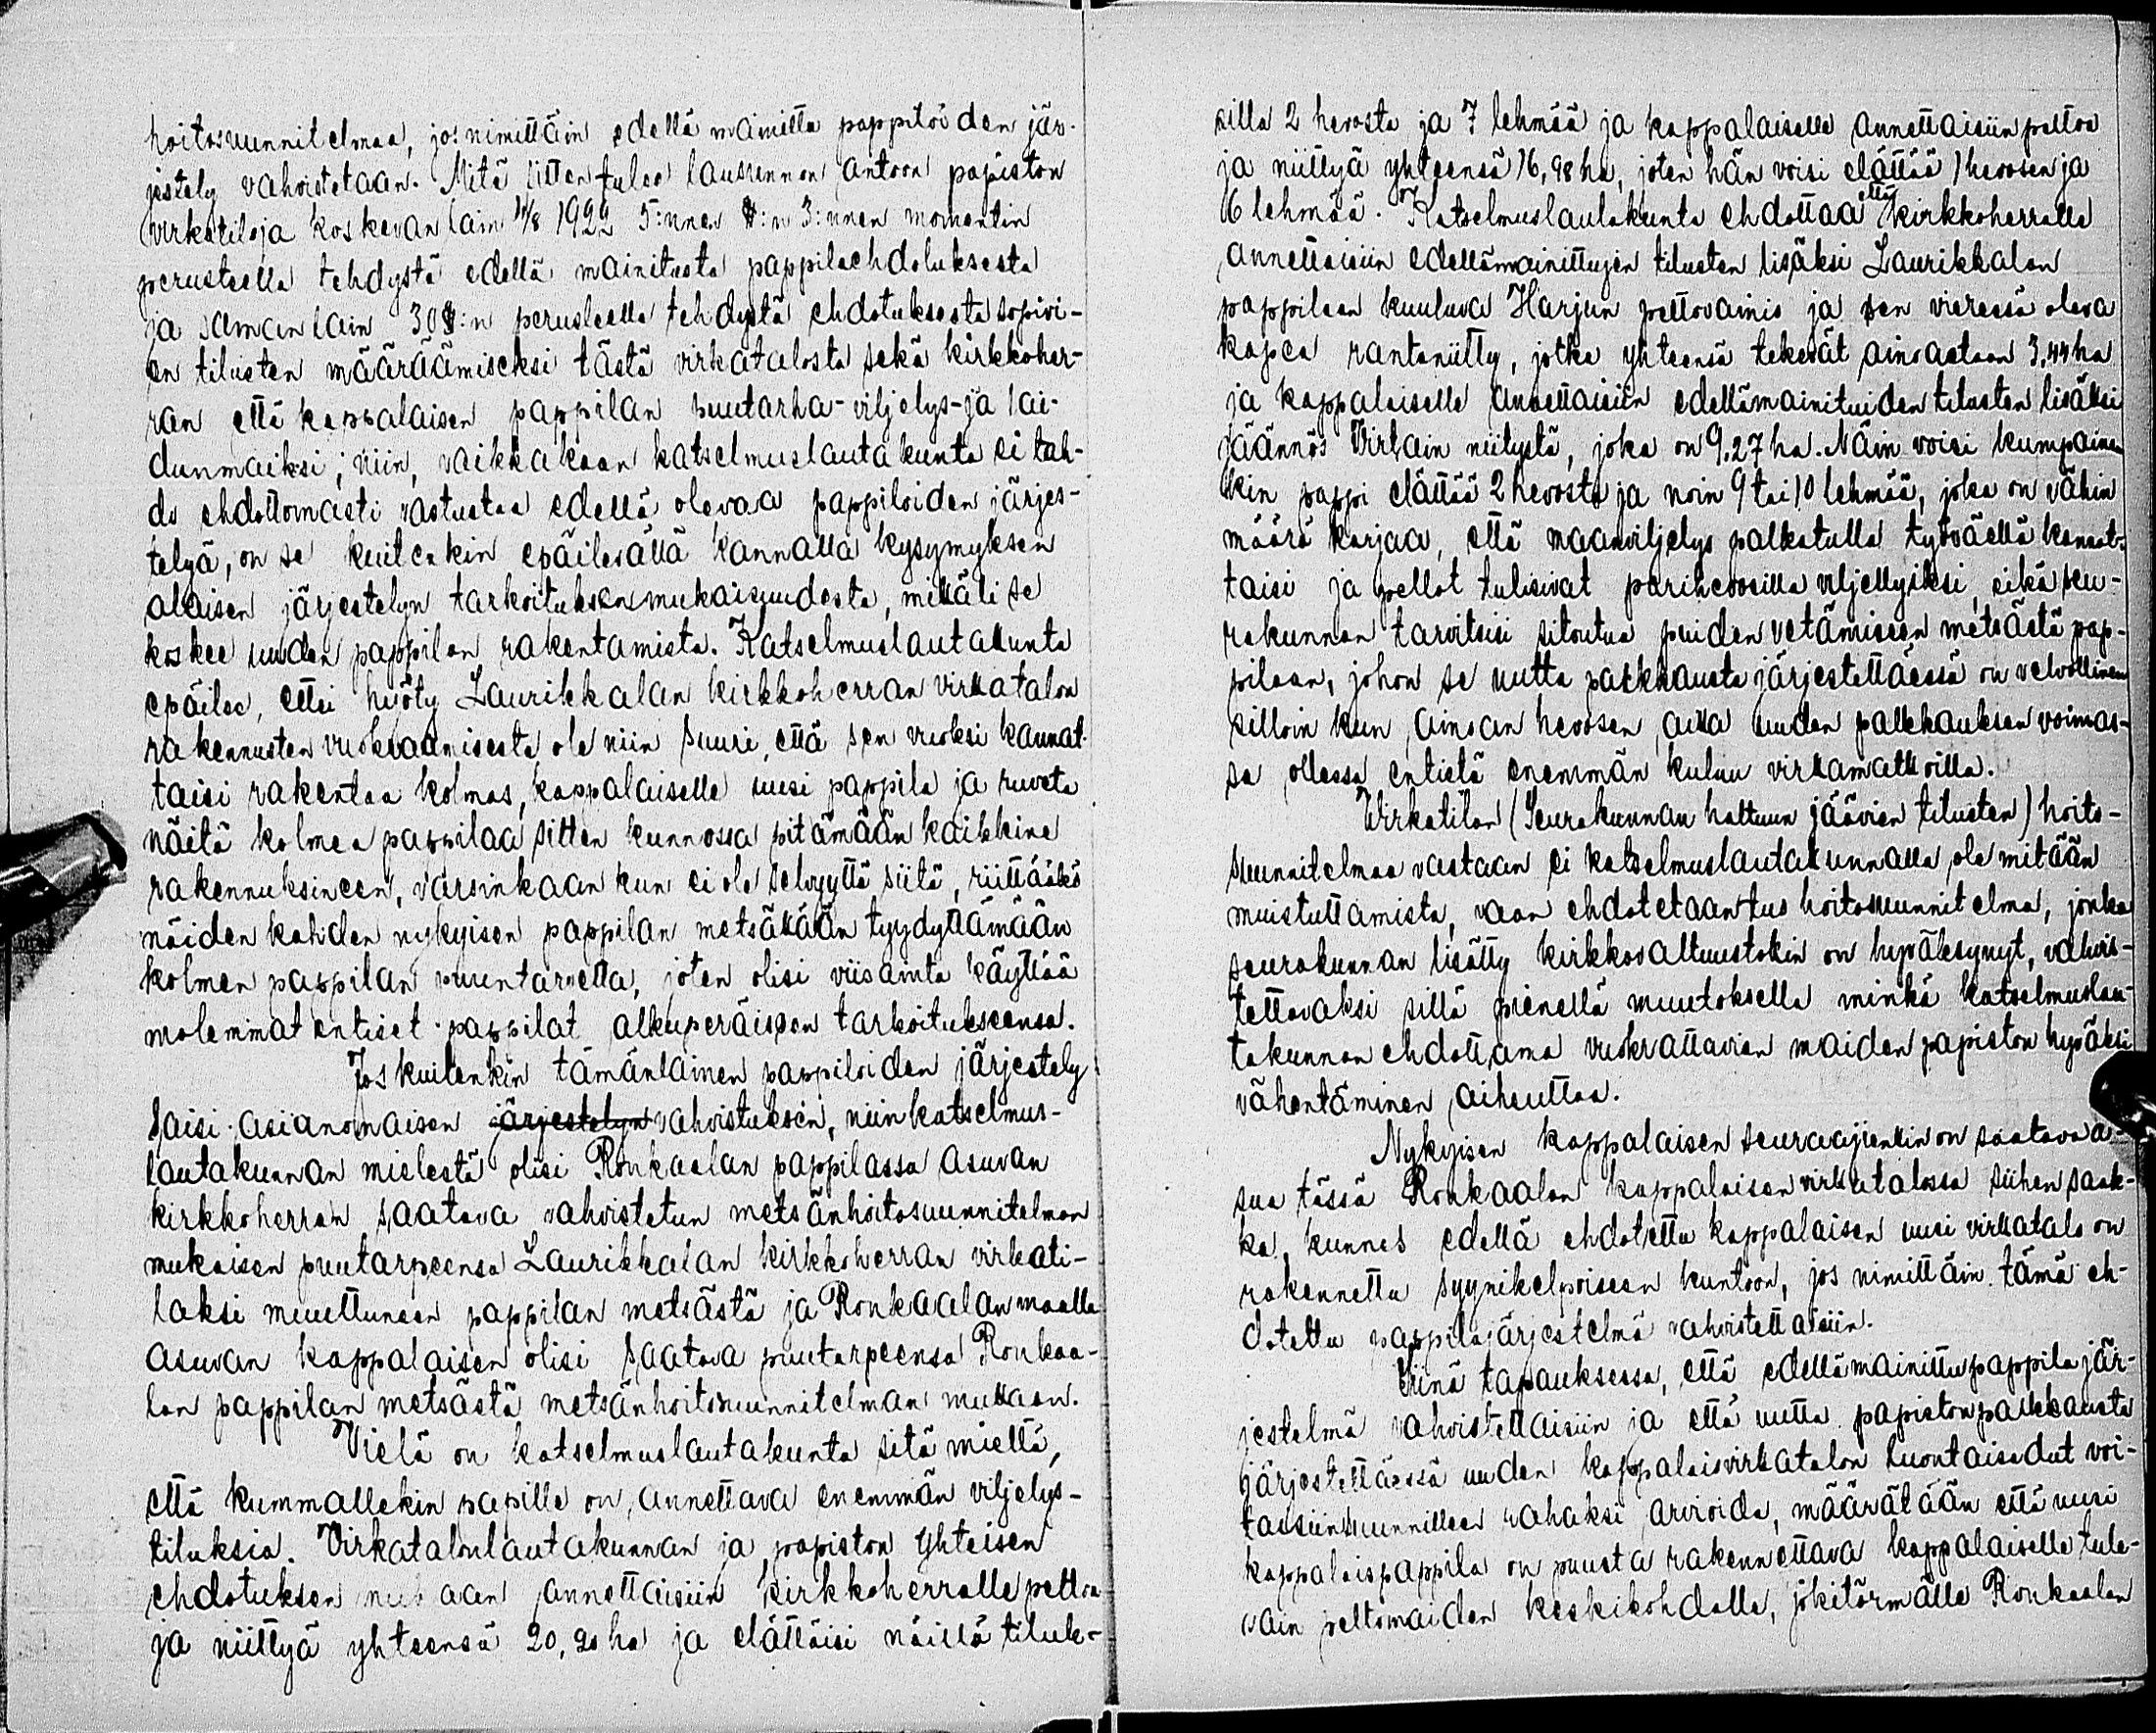 hoitosuunnitelmaa, jos nimittäin edellä mainittu pappiloiden jär-
jestely vahvistetaan. Mitä sitten tulee lausunnon antoon papiston
virkatiloja koskevan lain 11/8 1922 5:nnen §:n 3:nnen momentin
perusteella tehdystä edellä mainitusta pappilaehdotuksesta
ja saman lain 30 §:n perusteella tehdystä ehdotuksesta sopivi-
en tilusten määräämiseksi tästä virkatalosta sekä kirkkoher-
ran että kappalaisen pappilan puutarha- viljelys- ja lai-
dunmaiksi; niin, vaikkakaan katselmuslautakunta ei tah-
do ehdottomasti vastustaa edellä olevaa pappiloiden järjes-
telyä, on se kuitenkin epäilevällä kannalla kysymyksen
alaisen järjestelyn tarkoituksenmukaisuudesta, mikäli se
koskee uuden pappilan rakentamista. Katselmuslautakunta
epäilee, ettei hyöty Laurikkalan kirkkoherran virkatalon
rakennusten vuokraamisesta ole niin suuri, että sen vuoksi kannat-
taisi rakentaa kolmas, kappalaiselle uusi pappila ja ruveta
näitä kolmea pappilaa sitten kunnossa pitämään kaikkine
rakennuksineen, varsinkaan kun ei ole selvyyttä siitä, riittääkö
näiden kahden nykyisen pappilan metsäkään tyydyttämään
kolmen pappilan puuntarvetta, joten olisi viisainta käyttää
molemmat entiset pappilat alkuperäiseen tarkoitukseensa.
Jos kuitenkin tämänlainen pappiloiden järjestely
saisi asianomaisen järjestelyn vahvistuksen, niin katselmus-
lautakunnan mielestä olisi Ronkaalan pappilassa asuvan
kirkkoherran saatava vahvistetun metsänhoitosuunnitelman
mukaisen puutarpeensa Laurikkalan kirkkoherran virkati-
laksi muuttuneen pappilan metsästä ja Ronkaalan maalla
asuvan kappalaisen olisi saatava puutarpeensa Ronkaa-
lan pappilan metsästä metsänhoitosuunnitelman mukaan.
Vielä on katselmuslautakunta sitä mieltä,
että kummallekin papille on annettava enemmän viljelys-
tiluksia. Virkatalolautakunnan ja papiston yhteisen
ehdotuksen mukaan annettaisiin kirkkoherralle peltoa
ja niittyä yhteensä 20,20 ha ja elättäisi näillä tiluk-
silla 2 hevosta ja 7 lehmää ja kappalaiselle annettaisiin peltoa
ja niittyä yhteensä 16,98 ha, joten hän voisi elättää 1 hevosen ja
6 lehmää. Katselmuslautakunta ehdottaa että kirkkoherralle
annettaisiin edellämainittujen tilusten lisäksi Laurikkalan
pappilaan kuuluva Harjun peltovainio ja sen vieressä oleva
kapea rantaniitty, jotka yhteensä tekevät ainoastaan 3,44 ha
ja kappalaiselle annettaisiin edellämainituiden tilusten lisäksi
jäännös Virtain niitystä, joka on 9,27 ha. Näin voisi kumpainen
kin pappi elättää 2 hevosta ja noin 9 tai 10 lehmää, joka on vähin
määrä karjaa, että maanviljelys palkatulla työväellä kannat-
taisi ja pellot tulisivat parihevosilla viljellyiksi, eikä seu-
rakunnan tarvitsisi sitoutua puiden vetämiseen metsästä pap-
pilaan, johon se uutta palkkausta järjestettäessä on velvollinen
silloin kun ainoan hevosen aika uuden palkkauksen voimas-
sa ollessa entistä enemmän kuluu virkamatkoilla.
Virkatilan (Seurakunnan haltuun jäävien tilusten) hoito-
suunnitelmaa vastaan ei katselmuslautakunnalla ole mitään
muistuttamista, vaan ehdotetaan tuo hoitosuunnitelma, jonka
seurakunnan lisätty kirkkovaltuustokin on hyväksynyt, vahvis-
tettavaksi sillä pienellä muutoksella minkä katselmuslau-
takunnan ehdottama vuokrattavien maiden papiston hyväksi
vähentäminen aiheuttaa.
Nykyisen kappalaisen seuraajienkin on saatava a-
sua tässä Ronkaalan kappalaisen virkatalossa siihen saak-
ka, kunnes edellä ehdotettu kappalaisen uusi virkatalo on
rakennettu syynikelpoiseen kuntoon, jos nimittäin tämä eh-
dotettu pappilajärjestelmä vahvistettaisiin.
Siinä tapauksessa, että edellämainittu pappilajär-
jestelmä vahvistettaisiin ja että uutta papiston palkkausta
järjestettäessä uuden kappalaisvirkatalon luontaisedut voi-
taisiin suunnilleen rahaksi arvioida, määrätään että uusi
kappalaispappila on puusta rakennettava kappalaiselle tule-
vain peltomaiden keskikohdalle, jokitörmälle Ronkaalan